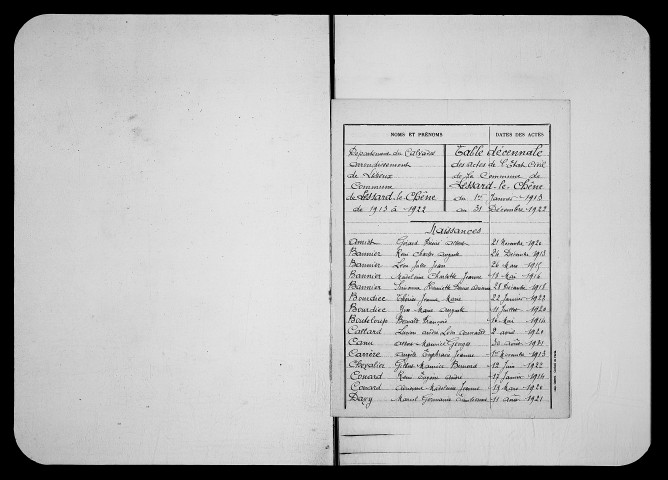 NOMS ET PRÉNOMS DATES DES ACTES
Département du Calvados
arrondissement
de Lisieux
Commune
de Lessard-le-Chêne
de 1913 à 1922
Table décennale
des actes de l'Etat Civil
de la Commune de
Lessard-le-Chêne
du 1er Janvier 1913
au 31 Décembre 1922
Naissances
Amiot Gérard Albert 21 Novembre 1920
Bannier René Charles Auguste 24 Décembre 1913
Bannier Léon Jules Jean 26 Mars 1915
Bannier Madeleine Charlotte Jeanne 18 Mai 1916
Bannier Simonne Henriette 28 Décembre 1918
Bourdiec Thérèse Jeanne Marie 22 Janvier 1922
Bourdiec Yves Marie Auguste 11 Juillet 1920
Benoît François 16 Mai 1914
Cattard Lucien André Léon 2 avril 1921
Canu Albert Maurice Georges 30 août 1921
Carrère Jeanne 1er Novembre 1913
Chevalier Gilbert Maurice Bernard 12 Juin 1922
Couard René Eugène André 17 Janvier 1914
Couard Madeleine Jeanne 19 Mars 1920
Davy Marcel Germain 11 août 1921